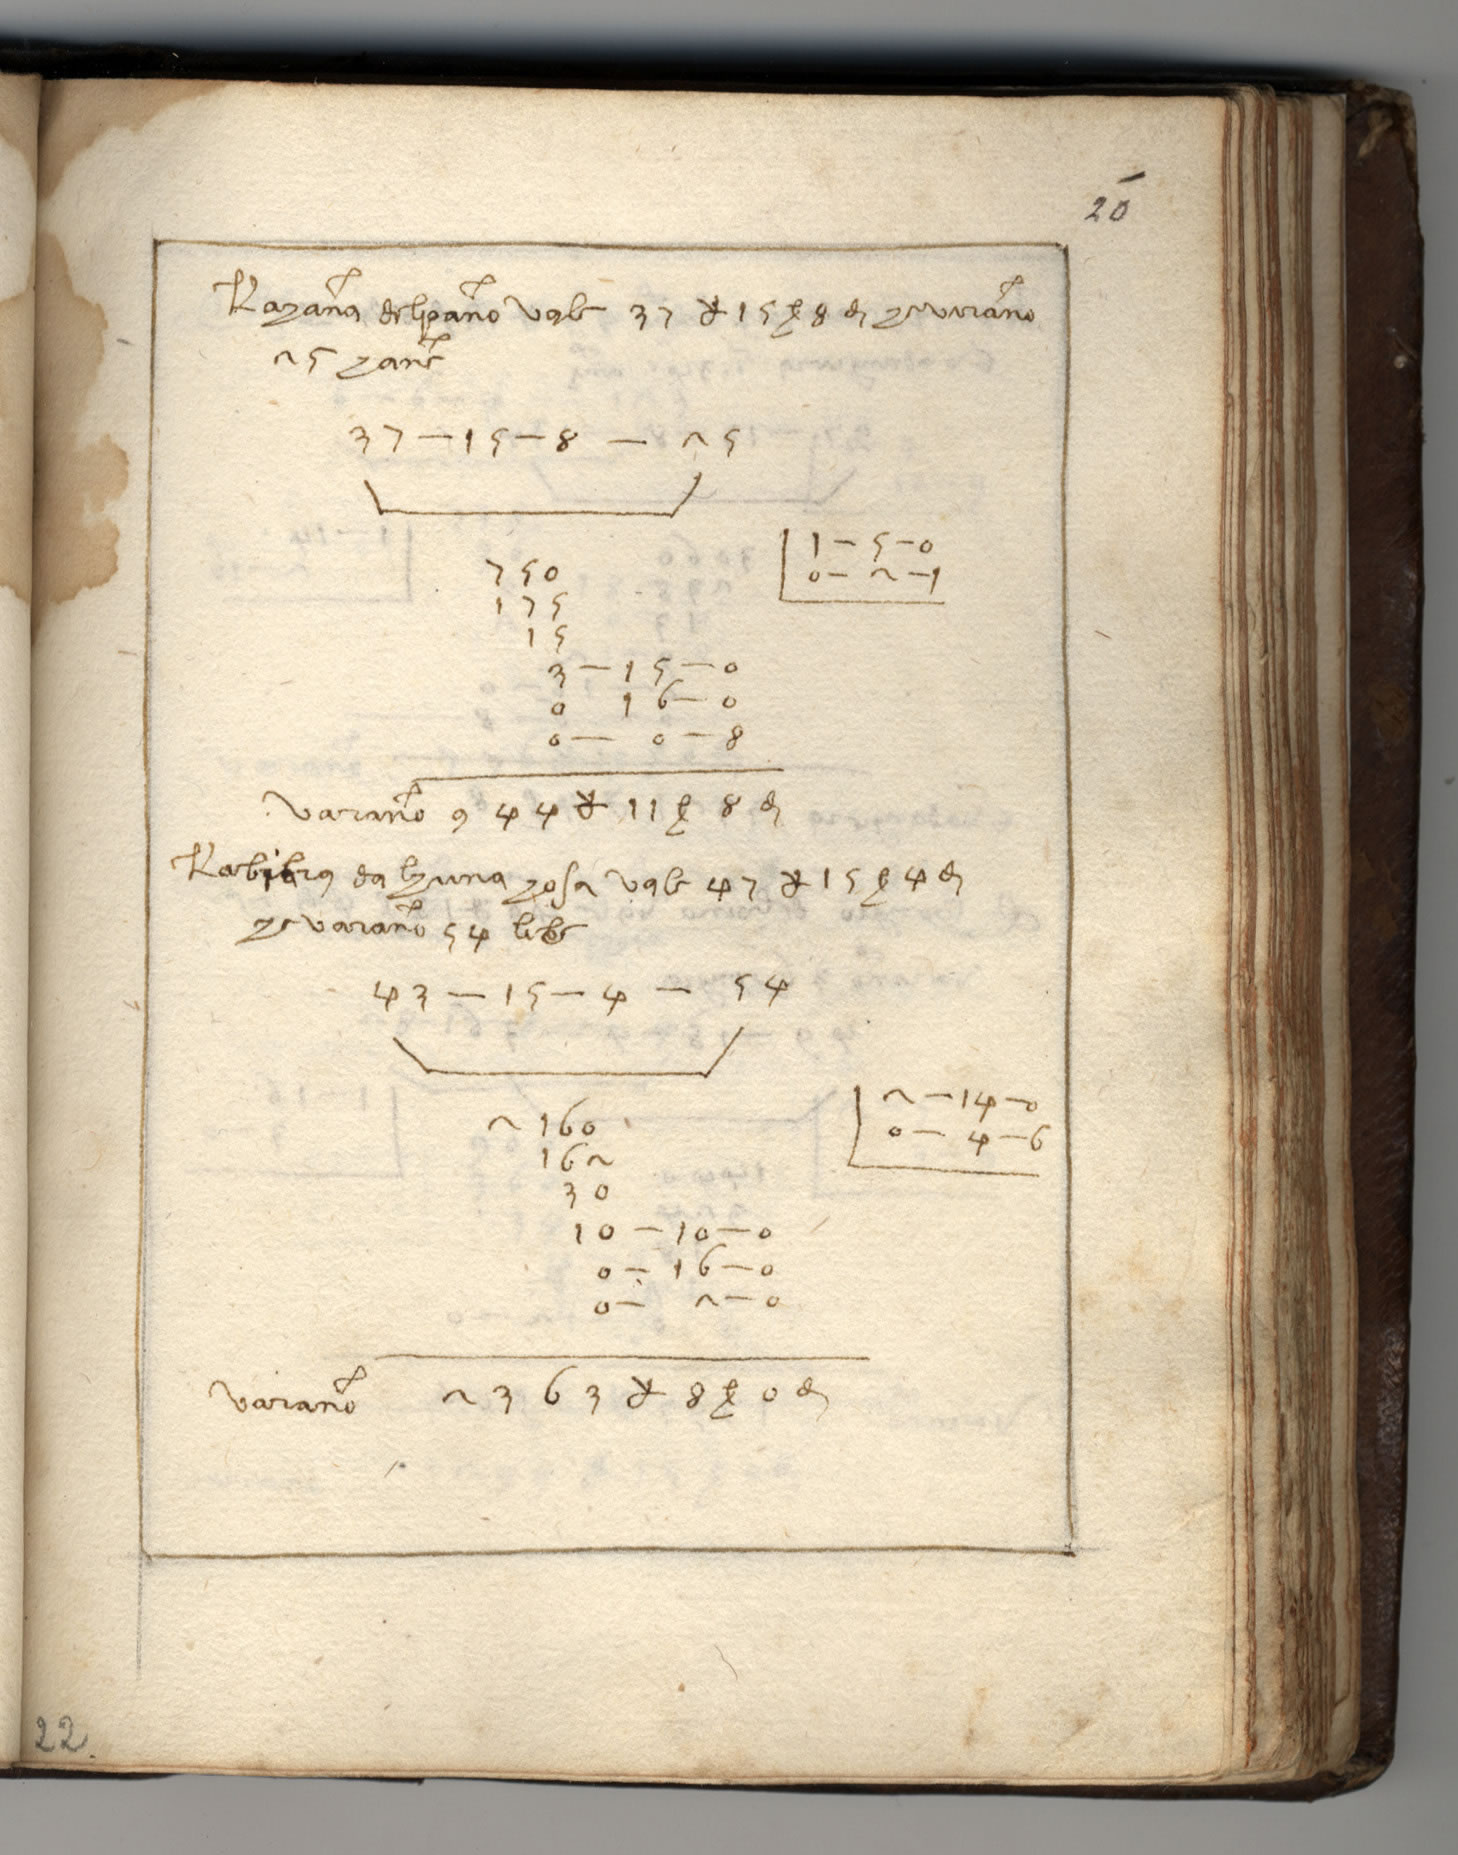 20
La cana del pano vale 37 ₶ 15 ß 8 d che varano
25 cane
37 — 15 — 8 — 25
1 — 5 — 0
0 — 2 — 1
750
175
15
3 — 15 — 0
0 16 — 0
0 — 0 — 8
varano 944 ₶ 11 ß 8 d
La libra da lcuna cosa vale 47 ₶ 15 ß 4 d
che varano 54 libre
43 — 15 — 4 — 54
2 — 14 — 0
0 — 4 — 6
2160
162
30
10 — 10 — 0
0 — 16 — 0
0 — 2 — 0
varano 2363 ₶ 8 ß 0 d
22.